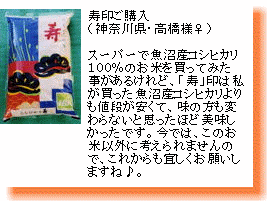 寿印ご購入
(神奈川県・高橋様♀)
スーパーで魚沼産コシヒカリ
100%のお米を買ってみた
事があるけれど、「寿」印は私
が買った魚沼産コシヒカリより
も値段が安くて、味の方も変
わらないと思ったほど美味し
かったです。今では、このお
米以外に考えられませんの
で、これからも宜しくお願いし
ますね♪。
寿